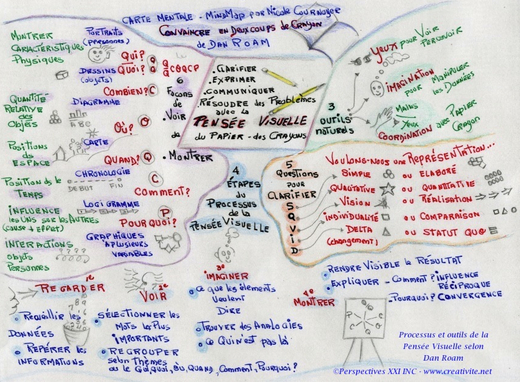 CARTE MENTALE - MINDMAP par Nicole Cournoyer
CONVAINCRE EN DEUX COUPS DE CRAYON
de DAN ROAM
. CLARIFIER
. EXPRIMER
. COMMUNIQUER
RÉSOUDRE des Problèmes
avec la
PENSÉE VISUELLE
du PAPIER - des CRAYONS
6
Façons
de
Voir
de
. MONTRER
MONTRER
CARACTÉRISTIQUES
Physiques
PORTRAITS
(personnes)
DESSINS
(objets)
QUI?
QUOI?
QCQQCP
COMBIEN?
C
QUANTITÉ
RELATIVE
des
OBJETS
DIAGRAMME
OÙ?
O
POSITIONS
ds
ESPACE
CARTE
QUAND?
Q
POSITION ds le
TEMPS
CHRONOLOGIE
DÉBUT FIN
COMMENT?
C
INFLUENCE
les UNS sur les AUTRES
(cause + effet)
LOGIGRAMME
POURQUOI?
P
INTERACTIONS
Objets
Personnes
GRAPHIQUES
À plusieurs
VARIABLES
3
OUTILS
naturels
YEUX pour VOIR
PERCEVOIR
IMAGINATION pour
MANIPULER
les Données
MAINS
YEUX avec PAPIER
COORDINATION CRAYON
4
ÉTAPES
du
PROCESSUS
de la
PENSÉE VISUELLE
5
Questions
pour
CLARIFIER
S
Q
V
I
D
VOULONS-NOUS une REPRÉSENTATION...
SIMPLE ou ÉLABORÉ
QUALITATIVE ou QUANTITATIVE
VISION ou RÉALISATION
INDIVIDUALITÉ ou COMPARAISON
DELTA ou STATUT QUO
(changement)
1e
REGARDER
. Recueillir les
DONNÉES
. REPÉRER les
INFORMATIONS
2e
VOIR
. SÉLECTIONNER les
Mots les Plus
IMPORTANTS
. REGROUPER
selon THÈMES
ou le Qui, Quoi, Où, Quand, Comment, Pourquoi?
3e
IMAGINER
. Ce que les Éléments
VEULENT
DIRE
. TROUVER des ANALOGIES
. QUI N'est pas là
4e
MONTRER
. RENDRE VISIBLE le RÉSULTAT
. EXPLIQUER - Comment? INFLUENCE
RÉCIPROQUE
- Pourquoi? CONVERGENCE
Processus et outils de la
Pensée Visuelle selon
Dan Roam
©Perspectives XXI INC - www.creativite.net